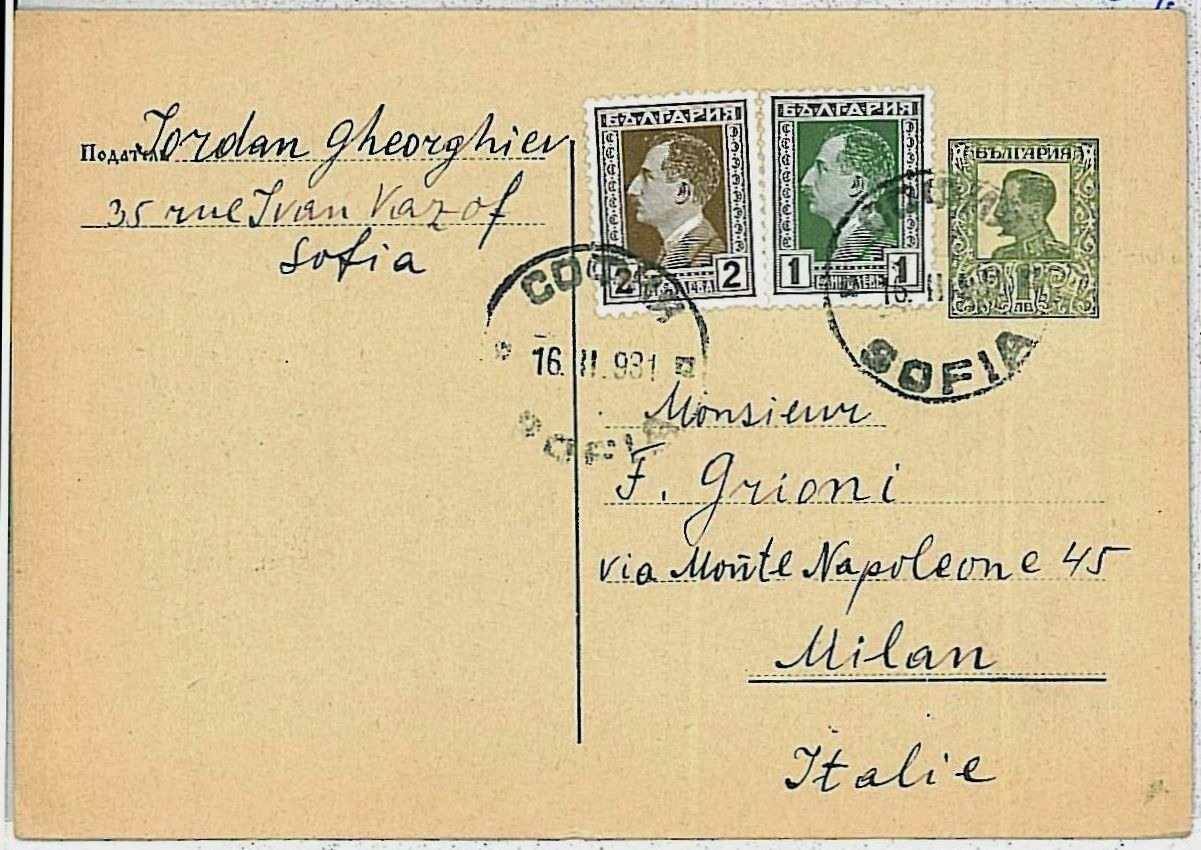 Податель Iordan Gheorghiev
35 rue Ivan Vazof
Sofia
БЪЛГАРИЯ
2 2
БЪЛГАРИЯ
1 1
БЪЛГАРИЯ
1
ЛВ
СОФИЯ
16. II. 931
SOFIA
16. II
SOFIA
Monsieur
F. Grioni
via Monte Napoleone 45
Milan
Italie